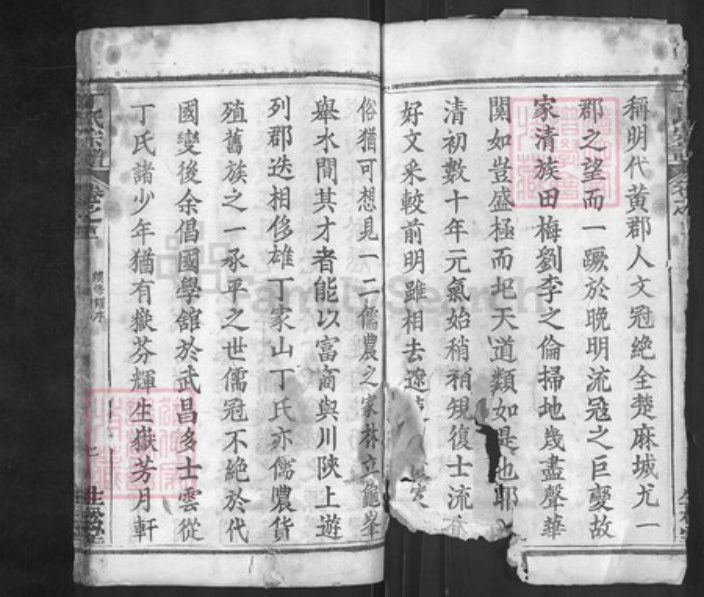 稱明代黃郡人文冠絕全楚麻城尤一
郡之望而一蹶於晚明流寇之巨變故
家清族田梅劉李之倫掃地幾盡聲華
闃如豈盛極而圮天道類如是也耶
清初數十年元氣始稍稍規復士流
好文采較前明雖相去遼
俗猶可想見一二儒農之家林立龜峯
舉水間其才者能以富商與川陝上遊
列郡迭相侈雄丁家山丁氏亦儒農貨
殖舊族之一承平之世儒冠不絕於代
國變後余倡國學館於武昌多士雲從
丁氏諸少年猶有嶽芬輝生嶽芳月軒
氏宗譜
卷之